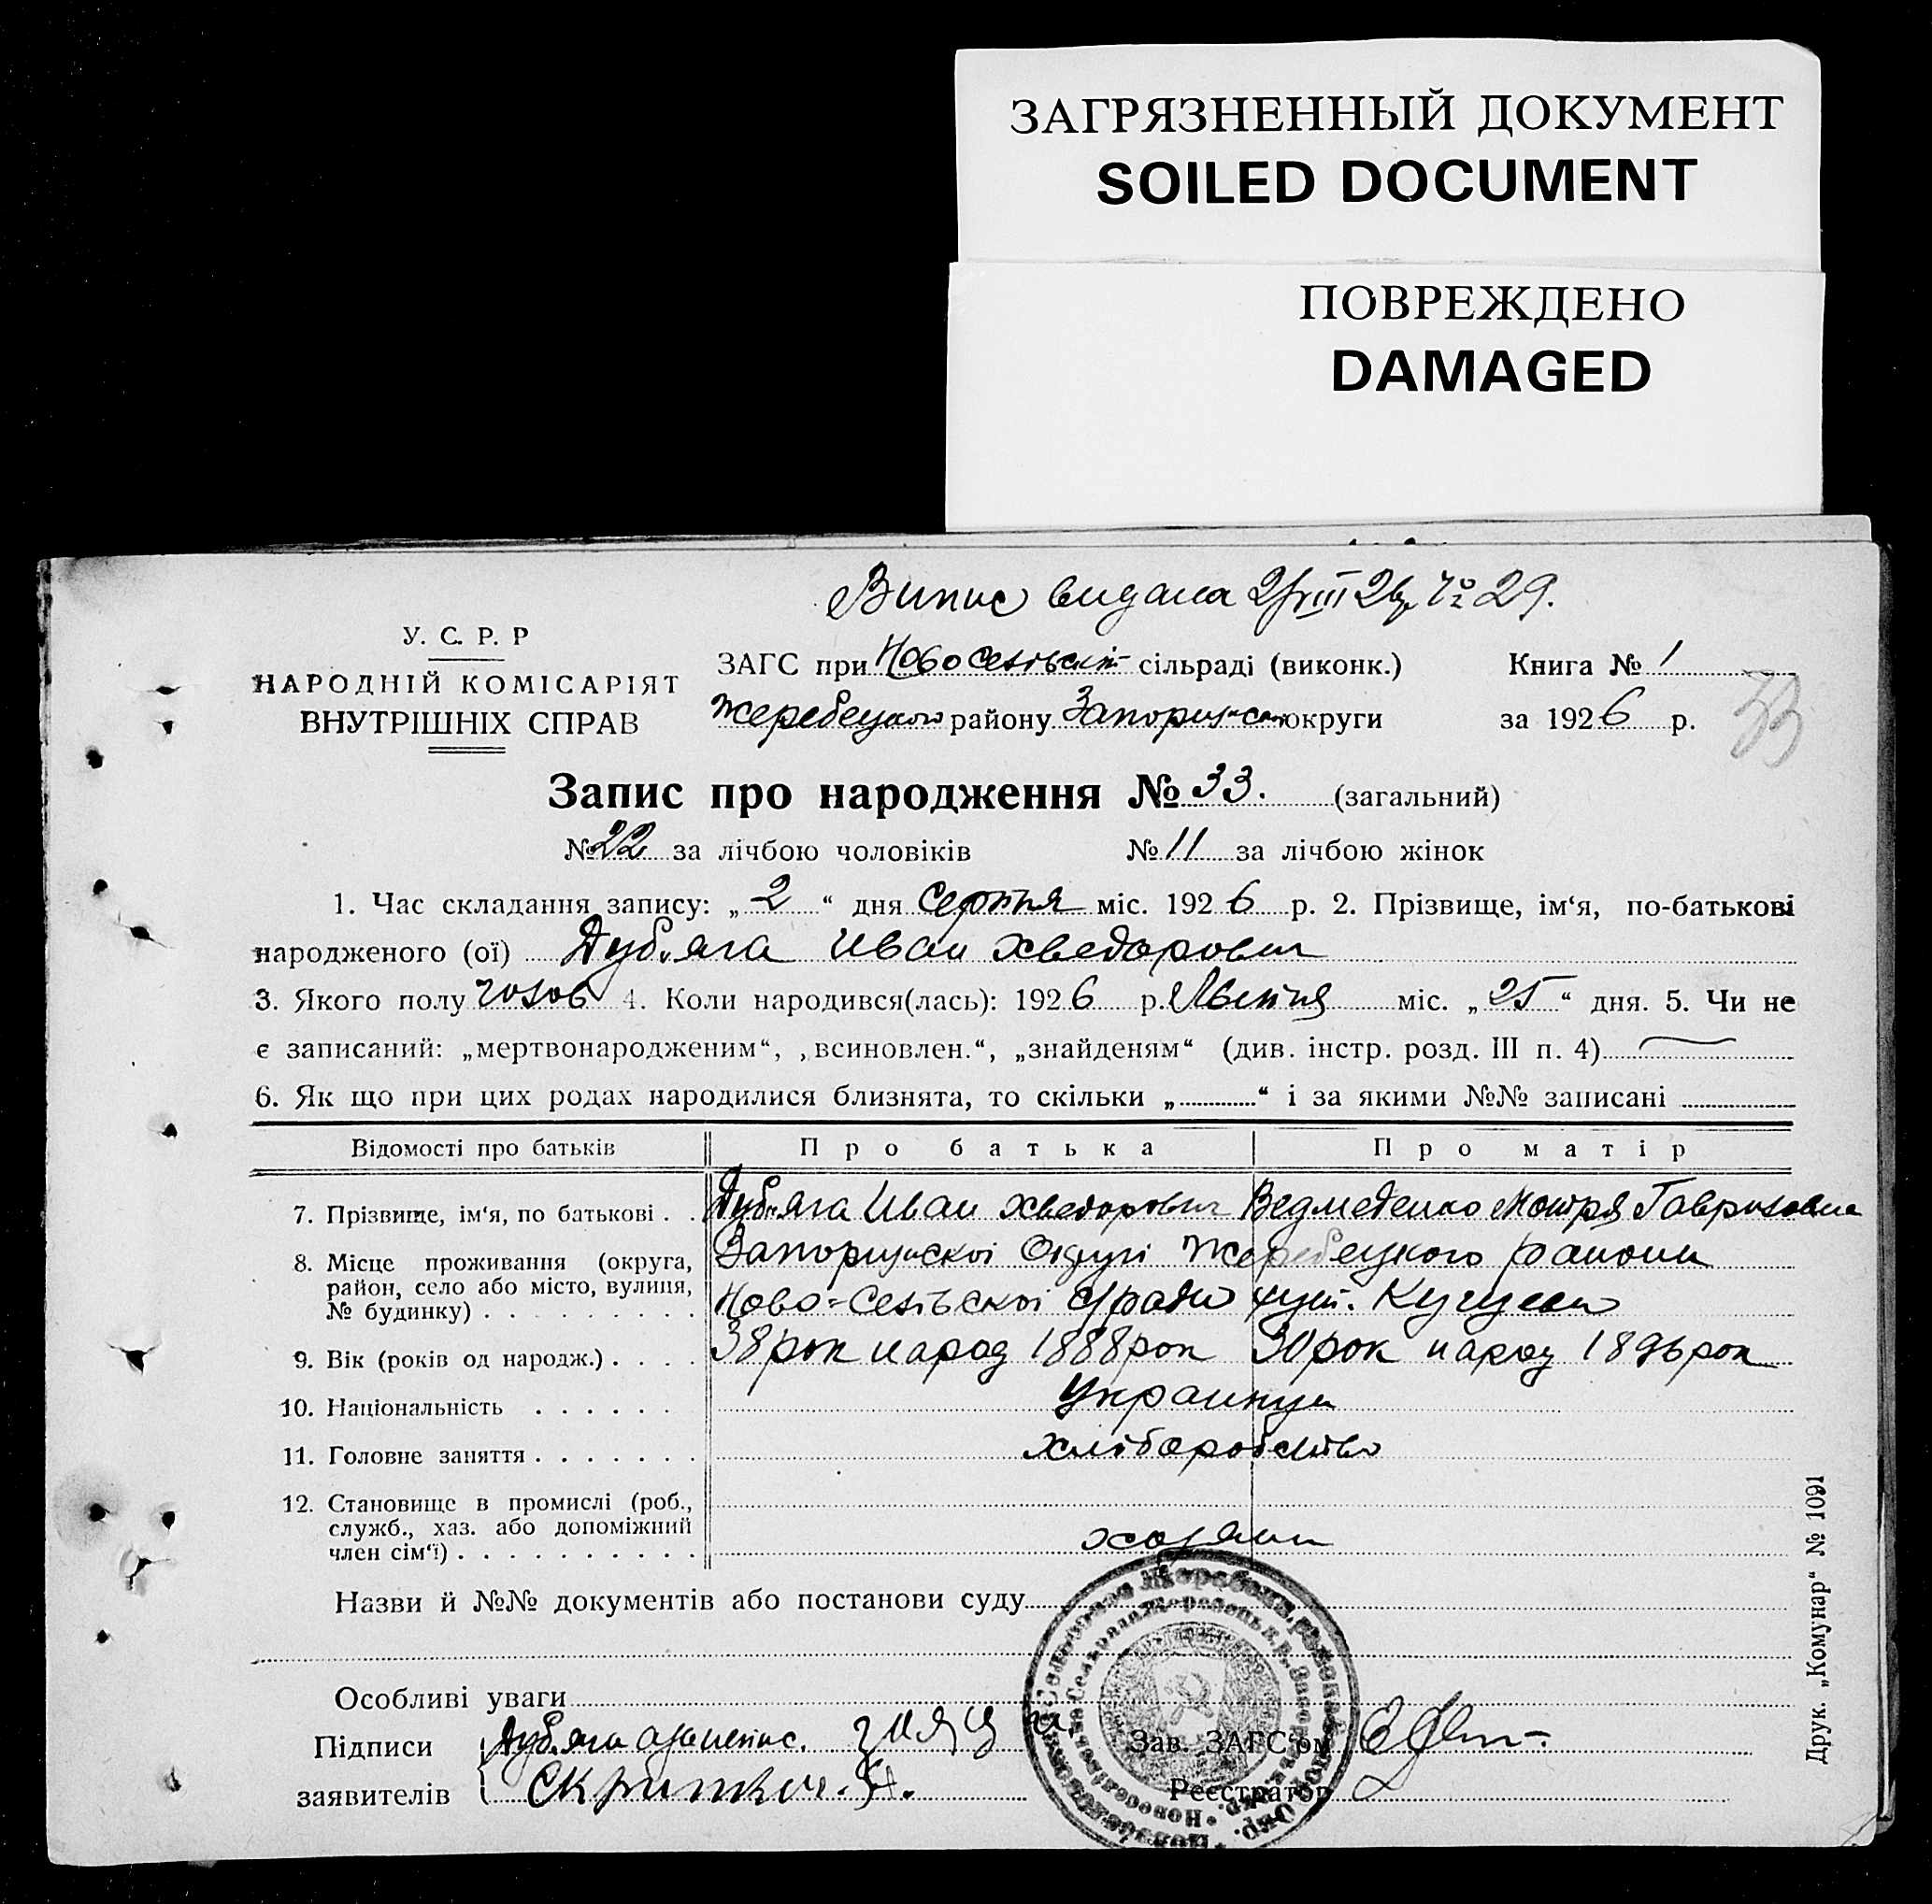 ЗАГРЯЗНЕННЫЙ ДОКУМЕНТ
SOILED DOCUMENT
ПОВРЕЖДЕНО
DAMAGED
Випис видана № 29.
У. С. Р. Р
НАРОДНІЙ КОМІСАРІЯТ
ВНУТРІШНІХ СПРАВ
ЗАГС при сільраді (виконк.) Книга № 1
Жеребецкого району округи за 1926 р.
33
Запис про народження № 33. (загальний)
№ 22 за лічбою чоловіків № 11 за лічбою жінок
1. Час складання запису: „ 2 “ дня Серпня міс. 1926 р. 2. Прізвище, ім‘я, по-батькові
народженого (ої) Дубяга Иван Хведорович
3. Якого полу чолов 4. Коли народився(лась): 1926 р. міс. „ 25 “ дня. 5. Чи не
є записаний: „мертвонародженим“, „всиновлен.“, „знайденям“ (див. інстр. розд. III п. 4)
6. Як що при цих родах народилися близнята, то скільки „ “ і за якими №№ записані
Відомості про батьків Про батька Про матір
7. Прізвище, ім‘я, по батькові . . Дубяга Иван Хведорович Ведмеденко Мотря Гавриловна
8. Місце проживання (округа, район, село або місто, вулиця, № будинку) . . . . . . . . .
Запорижскоі Округі Жеребецкого району
Ново-Селівскоі С/ради хут.
9. Вік (років од народж.) . . . . 38 рок народ 1888 рок 30 рок народ 1896 рок
10. Національність . . . . . . Украинци
11. Головне заняття . . . . . . . хліборобство
12. Становище в промислі (роб., служб., хаз. або допоміжний член сім‘ї) . . . . . . . . . .
хозяин
Назви й №№ документів або постанови суду
Особливі уваги
Підписи Дубяга
заявителів
Зав. ЗАГС‘ом
Реєстратор
Друк. „Комунар“ № 1091